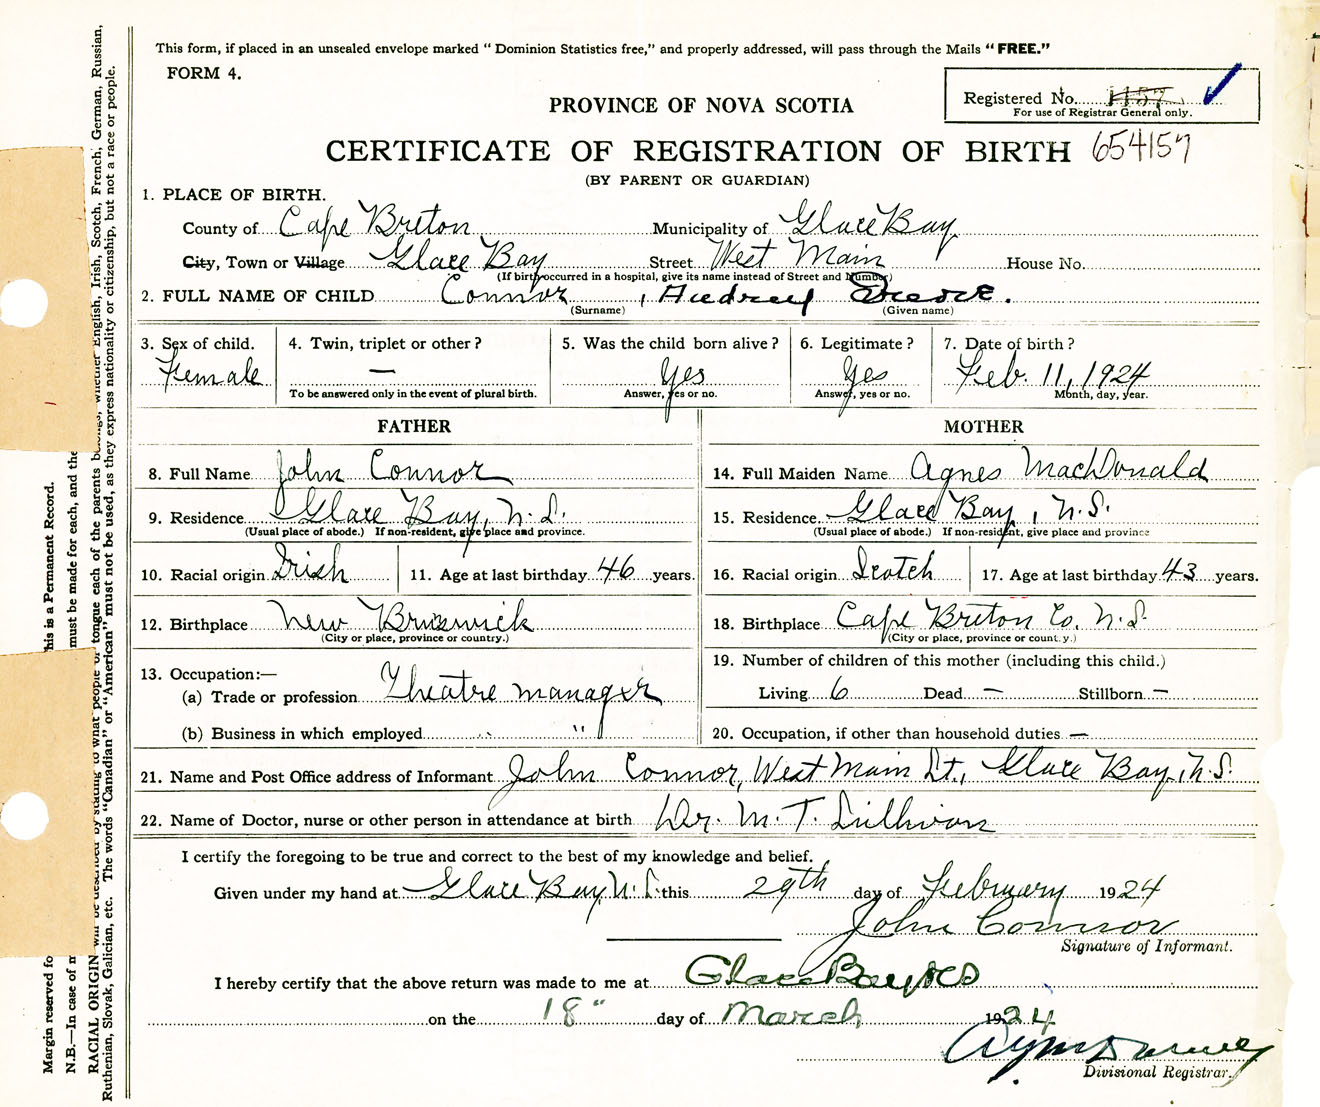 This form, if placed in an unsealed envelope marked "Dominion Statistics free," and properly addressed, will pass through the Mails "FREE."
FORM 4.
Registered No. 1157
For use of Registrar General only.
PROVINCE OF NOVA SCOTIA
CERTIFICATE OF REGISTRATION OF BIRTH 654157
(BY PARENT OR GUARDIAN)
1. PLACE OF BIRTH.
County of Cape Breton Municipality of Glace Bay
City, Town or Village Glace Bay Street West Main House No.
(If birth occurred in a hospital, give its name instead of Street and Number)
2. FULL NAME OF CHILD Connor, Audrey
(Surname) (Given name)
3. Sex of child. 4. Twin, triplet or other? 5. Was the child born alive? 6. Legitimate? 7. Date of birth?
Female — Yes Yes Feb. 11, 1924
To be answered only in the event of plural birth. Answer, yes or no. Answer, yes or no. Month, day, year.
FATHER MOTHER
8. Full Name John Connor 14. Full Maiden Name Agnes MacDonald
9. Residence Glace Bay, N.S. 15. Residence Glace Bay, N.S.
(Usual place of abode.) If non-resident, give place and province. (Usual place of abode.) If non-resident, give place and province
10. Racial origin Irish 11. Age at last birthday 46 years. 16. Racial origin Scotch 17. Age at last birthday 43 years.
12. Birthplace New Brunswick 18. Birthplace Cape Breton Co. N.S.
(City or place, province or country.) (City or place, province or country.)
13. Occupation:— 19. Number of children of this mother (including this child.)
(a) Trade or profession Theatre manager Living 6 Dead — Stillborn —
(b) Business in which employed " " 20. Occupation, if other than household duties —
21. Name and Post Office address of Informant John Connor, West Main St., Glace Bay, N.S.
22. Name of Doctor, nurse or other person in attendance at birth Dr. M. T. Sullivan
I certify the foregoing to be true and correct to the best of my knowledge and belief.
Given under my hand at Glace Bay N.S. this 29th day of February 1924
John Connor
Signature of Informant.
I hereby certify that the above return was made to me at Glace Bay NS
on the 18" day of March 1924
Divisional Registrar.
Margin reserved fo his is a Permanent Record.
N.B.—In case of m must be made for each, and the
RACIAL ORIGIN will be described by stating to what people or tongue each of the parents belongs, whether English, Irish, Scotch, French, German, Russian,
Ruthenian, Slovak, Galician, etc. The words "Canadian" or "American" must not be used, as they express nationality or citizenship, but not a race or people.